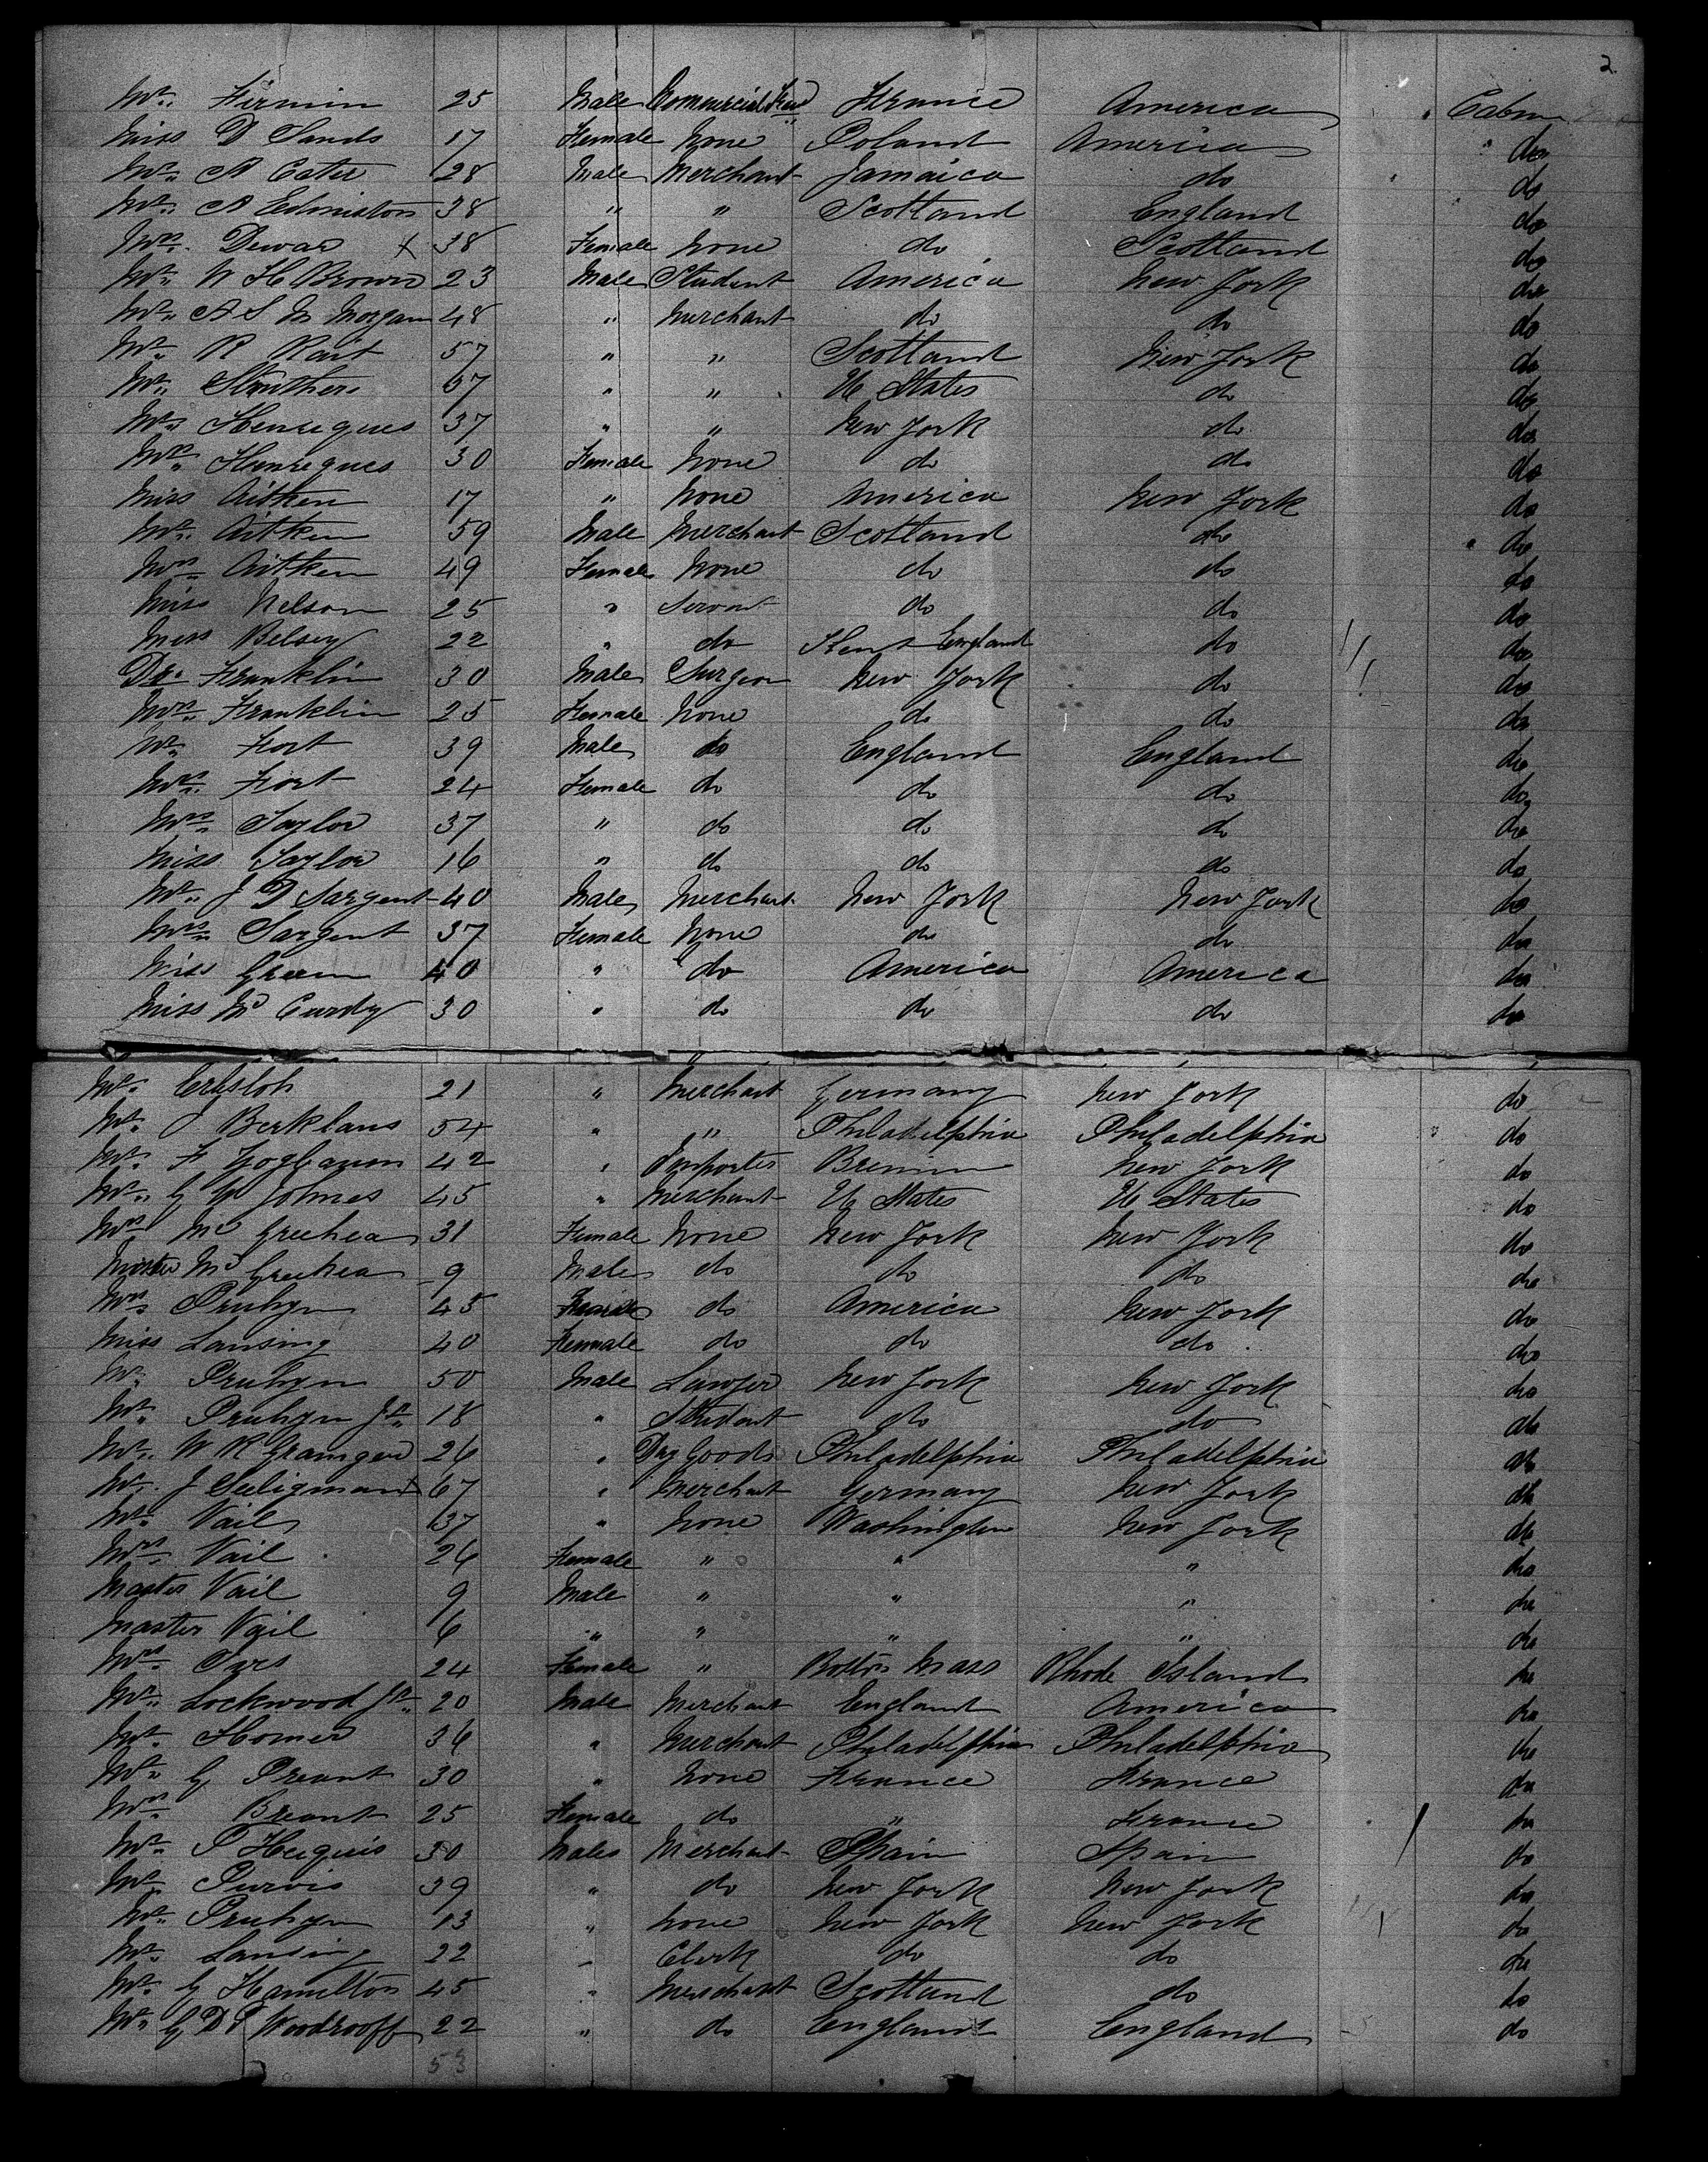 2
Mr. Firmin 25 Male Commercial France America Cabin
Miss D Sands 17 Female None Poland America do
Mr. A Cater 28 Male Merchant Jamaica do do
Mr. A Edmiston 38 " " Scotland England do
Mrs. Dewar x 38 Female None do Scotland do
Mr. W H Brown 23 Male Student America New York do
Mr. A S M Morgan 48 " Merchant do do do
Mr. R Rait 57 " " Scotland New York do
Mr. Struthers 37 " " U States do do
Mr. Henriques 37 " " New York do do
Mrs. Henriques 30 Female None do do do
Miss Aitken 17 " None America New York do
Mr. Aitken 59 Male Merchant Scotland do do
Mrs. Aitken 49 Female None do do do
Miss Nelson 25 " Servant do do do
Miss Belsey 22 " do Kent England do do
Dr. Franklin 30 Male Surgeon New York do do
Mrs. Franklin 25 Female None do do do
Mr. Fort 39 Male do England England do
Mrs. Fort 24 Female do do do do
Mrs. Taylor 37 " do do do do
Miss Taylor 16 " do do do do
Mr. J D Sargent 40 Male Merchant New York New York do
Mrs. Sargent 37 Female None do do do
Miss Green 40 " do America America do
Miss Mc Curdy 30 " do do do do
Mr. Erbsloh 21 " Merchant Germany New York do
Mr. J 54 " " Philadelphia Philadelphia do
Mr. F 42 " Importer Bremin New York do
Mr. G W Johnes 45 " Merchant U States U States do
Mrs. Mc 31 Female None New York New York do
Master Mc 9 Male do do do do
Mrs. Pruhyn 45 Female do America New York do
Miss Lansing 40 Female do do do do
Mr. Pruhyn 50 Male Lawyer New York New York do
Mr. Pruhyn Jr. 18 " Student do do do
Mr. W R Granger 26 " Dry Goods Philadelphia Philadelphia do
Mr. J Seligman x 67 " Merchant Germany New York do
Mr. Vail 37 " None Washington New York do
Mrs. Vail 26 Female " " " do
Master Vail 9 Male " " " do
Master Vail 6 " " " " do
Mrs. 24 Female " Boston Mass Rhode Island do
Mr. Lockwood Jr. 20 Male Merchant England America do
Mr. Homer 36 " Merchant Philadelphia Philadelphia do
Mr. G Preant 30 " None France France do
Mrs. Breant 25 Female do " France do
Mr. P 30 Male Merchant Spain Spain do
Mr. Purvis 39 " do New York New York do
Mr. Pruhyn 13 " None New York New York do
Mr. Lansing 22 " Clerk do do do
Mr. G Hamilton 45 " Merchant Scotland do do
Mr. G D P Woodrooff 22 " do England England do
53